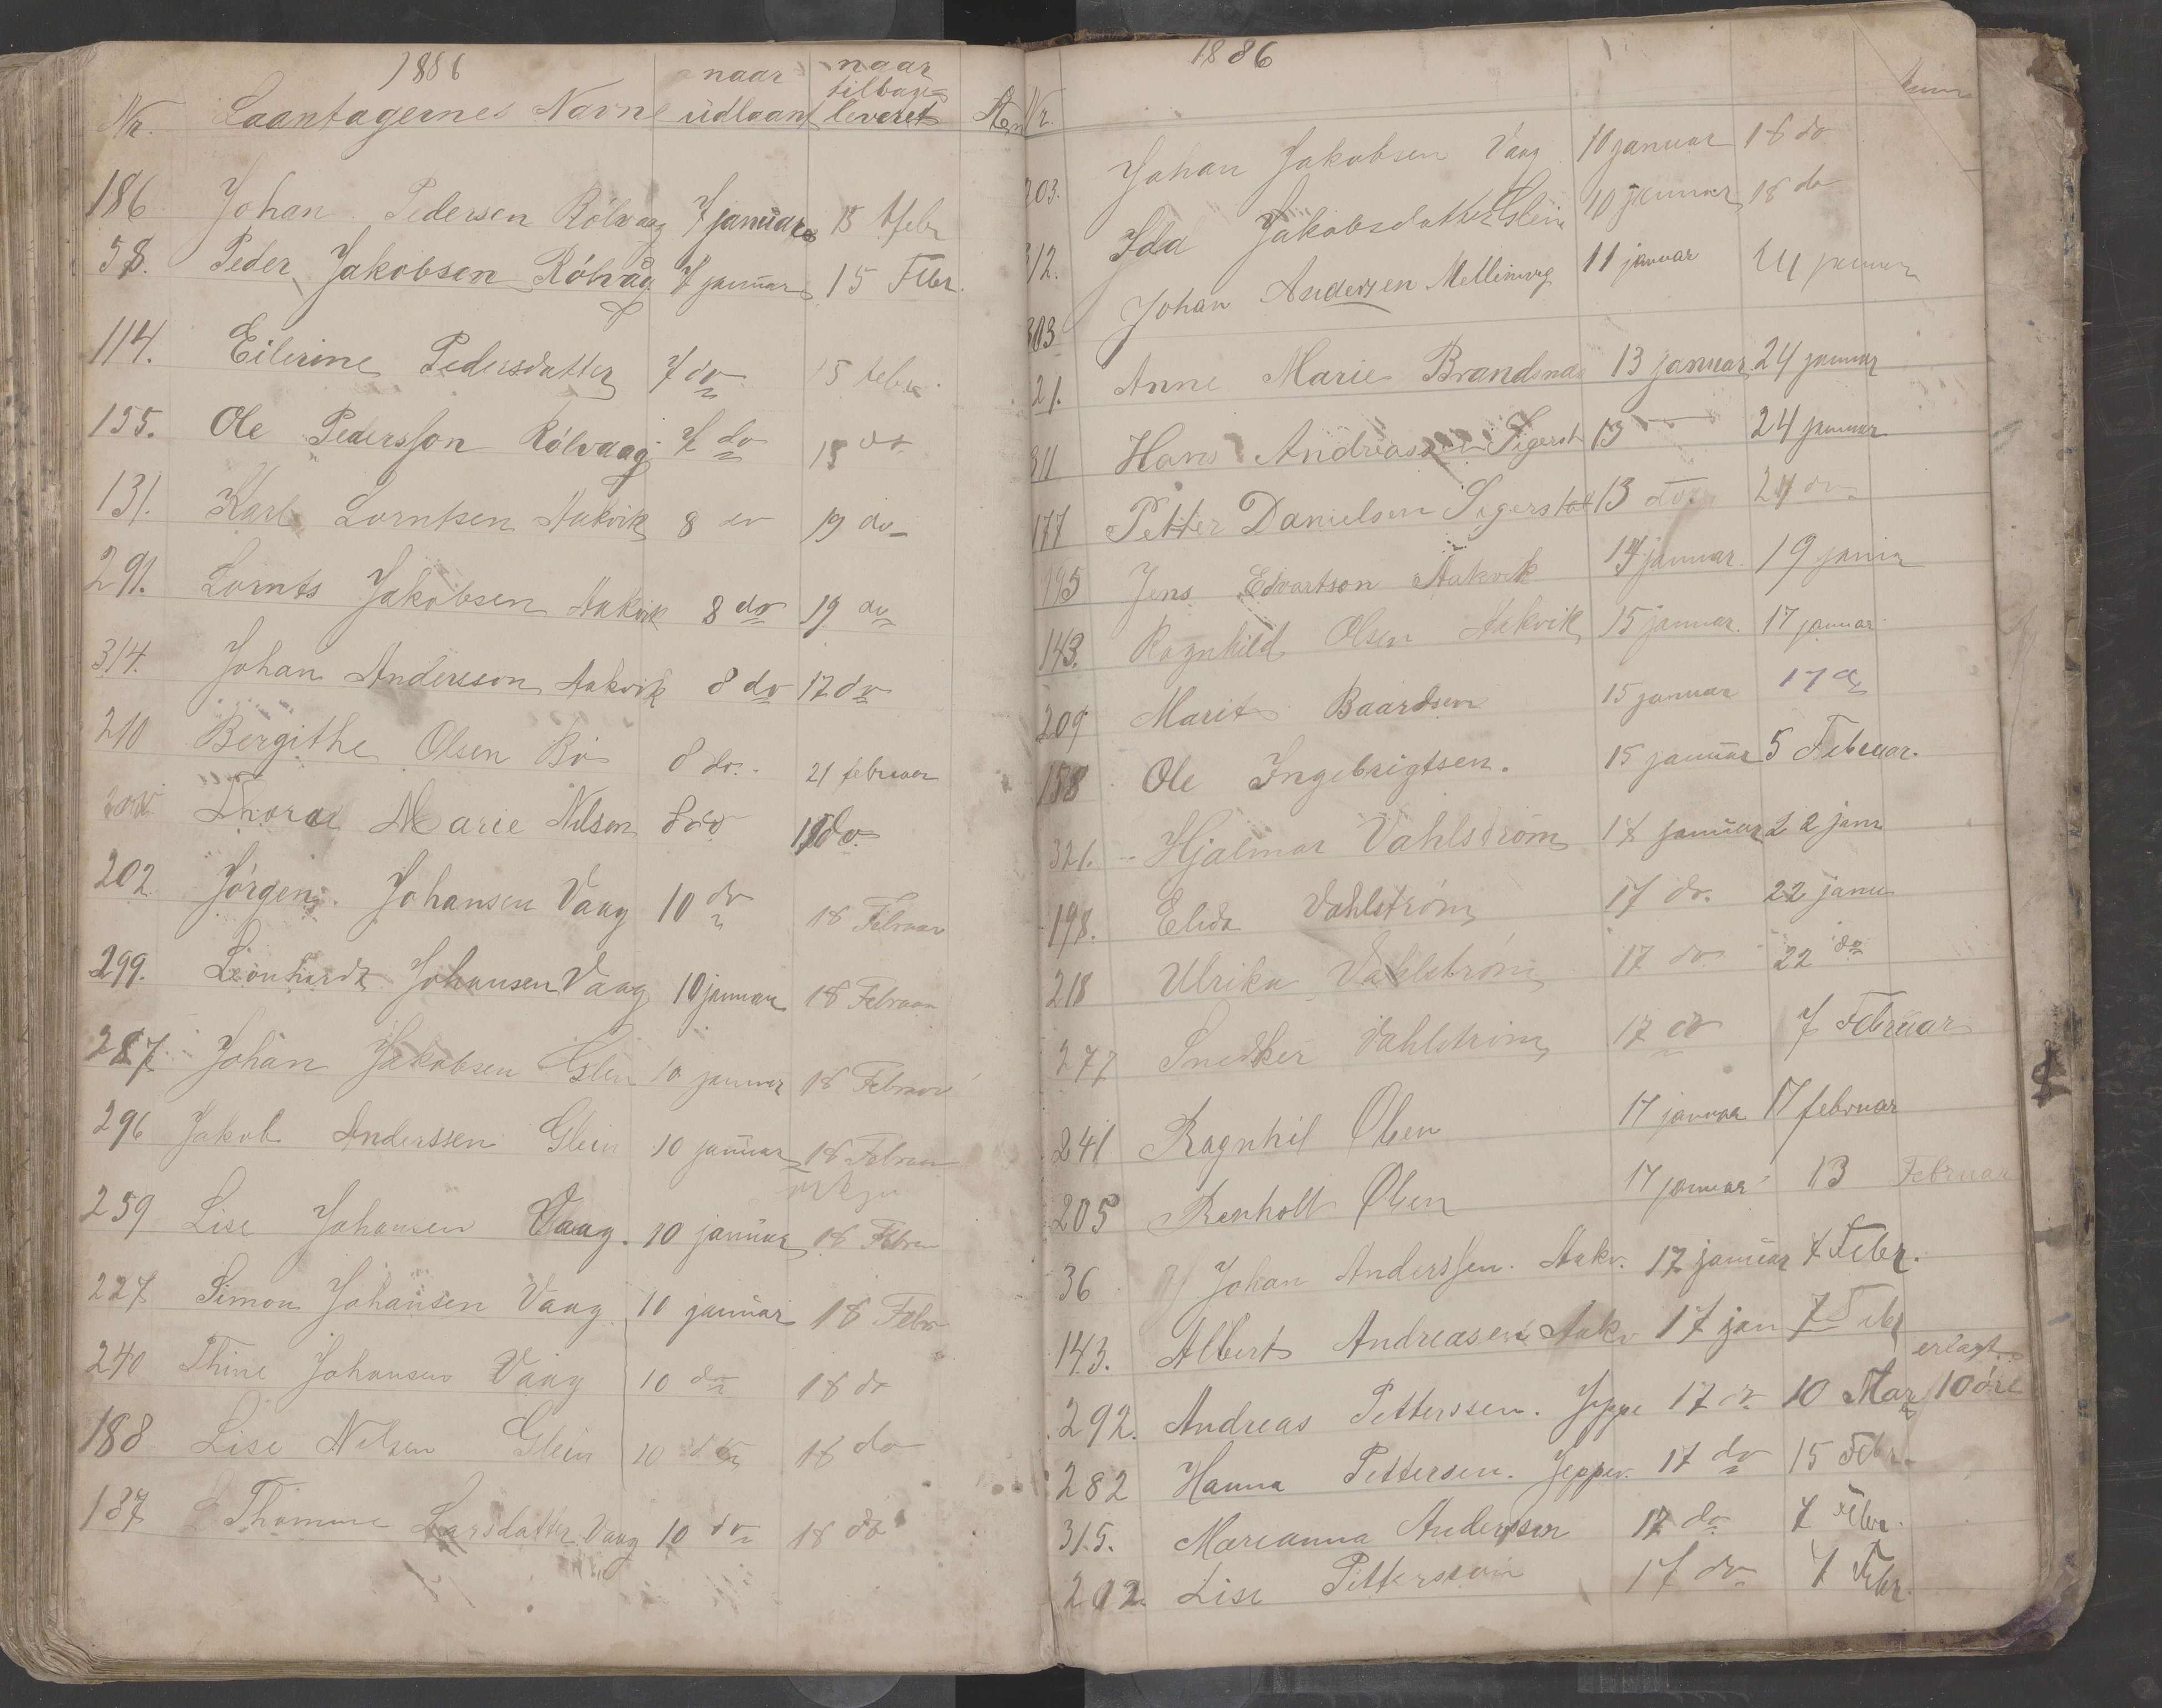 1886
Nr. Laantagernes Navne naar udlaant naar tilbage= leveret
186 Johan Pedersen Rölvaag 7 januar 15 febr
58. Peder Jakobsen Rölvåg 7 januar 15 Febr.
114. Eilerine Pedersdatter 7 do 15 febr.
155. Ole Pedersson Rölvaag 7 do 15 do
131. Karl Lorntsen Aakvik 8 do 19 do
291. Lornts Jakobsen Aakvik 8 do 19 do
314. Johan Andersson Aakvik 8 do 17 do
210 Bergithe Olsen Bö 8 do. 21 februar
Thora Marie Nilsen 8 do do.
202 Jörgen Johansen Vaag 10 do 18 Februar
299. Leonhardt Johansen Vaag 10 januar 18 Februar
287 Johan Jakobsen Glein 10 januar 18 Februar
296 Jakob Anderssen Glein 10 januar 18 Februar
259 Lise Johansen Vaag. 10 januar 18 Febru
227 Simon Johansen Vaag. 10 januar 18 Febr
240 Thine Johansen Vaag 10 do 18 do
188 Lise Nilsen Glein 10 do 18 do
187 Thomine Larsdatter Vaag 10 do 18 do
1886
Nr.
203. Johan Jakobsen Vaag 10 januar 18 do
312. Ida Jakobsdatter Glein 10 januar 18 do
303 Johan Andersen 11 januar 24 januar
21. Anne Marie 13 januar 24 januar
311 Hans Andreassen Sigerst 13 — 24 januar
177 Petter Danielsen Sigerstad 13 do 24 do
195 Jens Edvartson Aakvik 14 januar. 19 janua
143. Ragnhild Olsen Aakvik 15 januar. 17 januar
209 Marit Baardsen 15 januar 17
158 Ole Ingebrigtsen. 15 januar 5 Februar.
321. Hjalmar Vahlström 17 januar 22 janu
198. Elida Vahlström 17 do. 22 janu
218 Ulrika Vahlström 17 do 22 do
277 Snedker Vahlström 17 do 7 Februar
241 Ragnhil Olsen 17 januar 17 februar
205 Renholt Olsen 17 januar 13 Februar
36 Johan Anderssen. Aakv. 17 januar 7 Febr.
143. Albert Andreasen Aakv 17 jan 7 Febr
erlagt
292. Andreas Petterssen. Jeppe 17 do 10 Mars 10 öre
282 Hanna Pettersen. Jeppev. 17 do 15 Febr.
315. Marianna Anderssen 17 do 7 Febr.
202. Lise Petterssen 17 do 7 Febr.